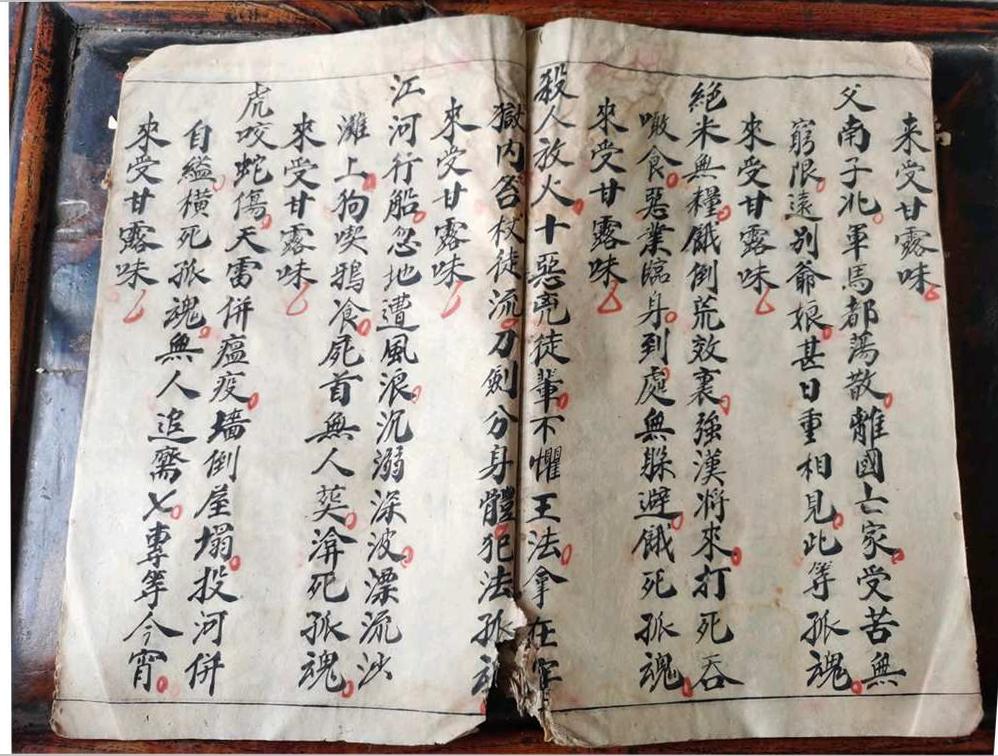 来受甘露味
父南子北軍馬都蕩散離國亡家受苦無
窮限遠别爺娘甚日重相見此等孤魂
來受甘露味
絶米無糧餓倒荒效裏強漢将來打死吞
噉食惡業臨身到處無躲避餓死孤魂
來受甘露味
殺人放火十惡兇徒輩不懼王法拿在牢
獄内笞杖徒流刀劍分身體犯法孤魂
來受甘露味
江河行船忽地遭風浪沉溺深波漂流沙
灘上狗喫鴉飡屍首無人葬渰死孤魂
來受甘露味
虎咬蛇傷天雷併瘟疫墻倒屋塌投河併
自縊橫死孤魂無人追齋七專等今宵
來受甘露味